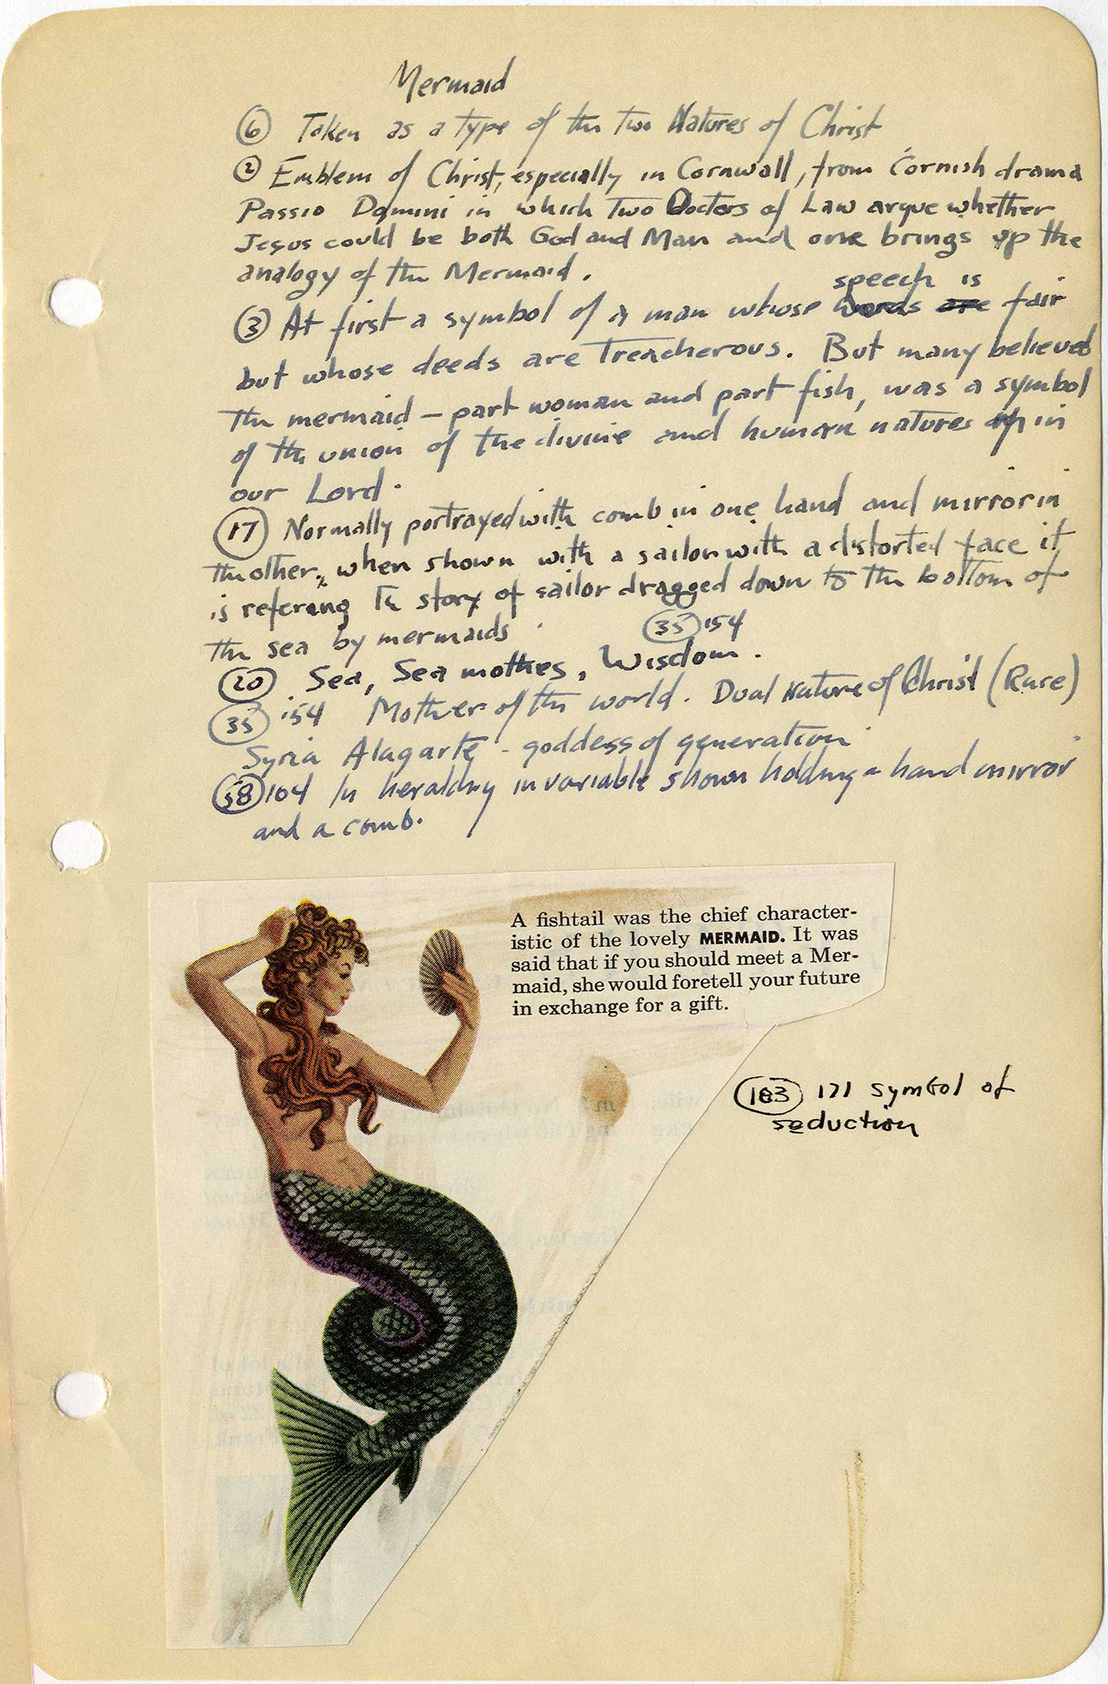 Mermaid
(6) Taken as a type of the two Natures of Christ
(2) Emblem of Christ, especially in Cornwall, from Cornish drama
Passio Domini in which Two Doctors of Law argue whether
Jesus could be both God and Man and one brings up the
analogy of the Mermaid.
speech is
(3) At first a symbol of a man whose words are fair
but whose deeds are treacherous. But many believed
the mermaid – part woman and part fish, was a symbol
of the union of the divine and human natures in
our Lord.
(17) Normally portrayed with comb in one hand and mirror in
the other, when shown with a sailor with a distorted face it
is refering to story of sailor dragged down to the bottom of
the sea by mermaids.
(35) 154
(20) Sea, Sea mothes, Wisdom.
(35) :154 Mother of the world. Dual Nature of Christ (Rare)
Syria Alagarte - goddess of generation
(58) 104 In heraldry invariable shown holding a hand mirror
and a comb.
A fishtail was the chief character-
istic of the lovely MERMAID. It was
said that if you should meet a Mer-
maid, she would foretell your future
in exchange for a gift.
(103) 171 symbol of
seduction